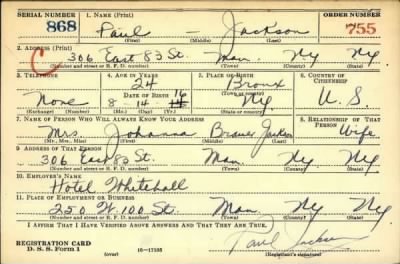 SERIAL NUMBER 1. NAME (Print) ORDER NUMBER
868 Paul — Jackson 755
(First) (Middle) (Last)
2. ADDRESS (Print)
C 306 East 83 St. Man. Ny Ny
(Number and street or R. F. D. number) (Town) (County) (State)
3. TELEPHONE 4. AGE IN YEARS 5. PLACE OF BIRTH 6. COUNTRY OF CITIZENSHIP
24 Bronx
DATE OF BIRTH 16 (Town or county)
None 8-14 Ny U.S.
(Exchange) (Number) (Mo.) (Day) (Yr.) (State or country)
7. NAME OF PERSON WHO WILL ALWAYS KNOW YOUR ADDRESS 8. RELATIONSHIP OF THAT PERSON
Mrs. Johanna Jackson Wife
(Mr., Mrs., Miss) (First) (Middle) (Last)
9. ADDRESS OF THAT PERSON
306 East 83 St. Man. Ny Ny
(Number and street or R. F. D. number) (Town) (County) (State)
10. EMPLOYER'S NAME
Hotel Whitehall
11. PLACE OF EMPLOYMENT OR BUSINESS
250 W. 100 St. Man. Ny Ny
(Number and street or R. F. D. number) (Town) (County) (State)
I AFFIRM THAT I HAVE VERIFIED ABOVE ANSWERS AND THAT THEY ARE TRUE.
REGISTRATION CARD Paul Jackson
D. S. S. FORM 1 (over) 16—17105 (Registrant's signature)